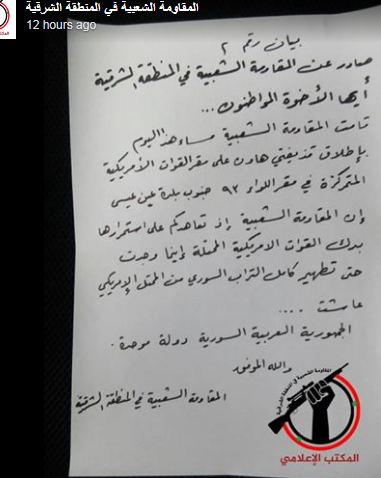 المقاومة الشعبية في المنطقة الشرقية
12 hours ago
بيان رقم ٢
صادر عن المقاومة الشعبية في المنطقة الشرقية
أيها الأخوة المواطنون...
قامت المقاومة الشعبية مساء هذا اليوم
بإطلاق قذيفتي هاون على مقر القوات الأمريكية
المتمركزة في مقر اللواء ٩٣ جنوب بلدة عين عيسى
وإن المقاومة الشعبية إذ تعاهدكم على استمرارها
بدك القوات الامريكية المحتلة وأينما وجدت
حتى تطهير كامل التراب السوري من المحتل الإمريكي
عاشت ....
الجمهورية العربية السورية دولة موحدة.
والله الموفق
المقاومة الشعبية في المنطقة الشرقية
المقاومة الشعبية في المنطقة الشرقية
المكتب الإعلامي